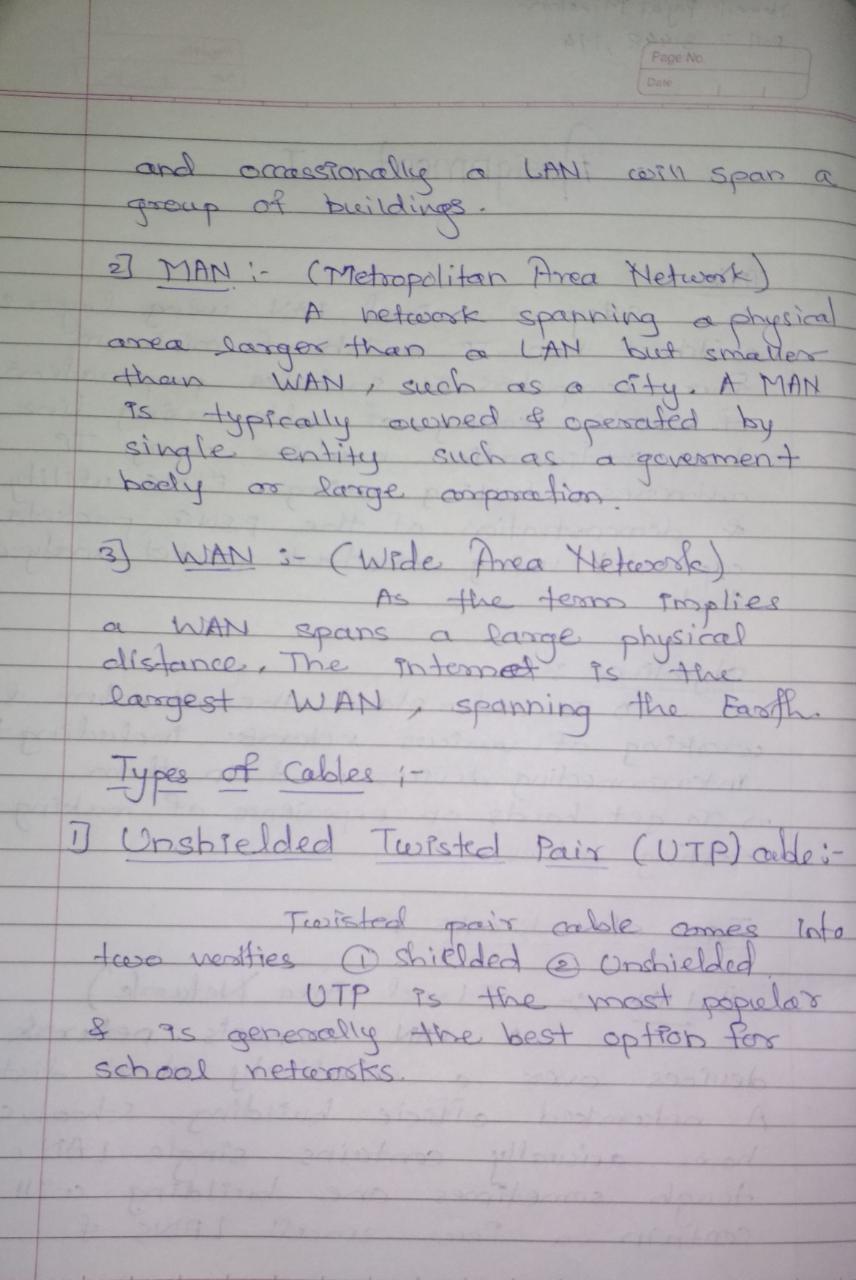 Page No.
Date
and occassionally a LAN will span a
group of buildings.
2] MAN :- (Metropolitan Area Network)
A network spanning a physical
area larger than a LAN but smaller
than WAN, such as a city. A MAN
is typically owned & operated by
single entity such as a goverment
body or large corporation.
3] WAN :- (Wide Area Network)
As the term implies
a WAN spans a large physical
distance. The internet is the
largest WAN, spanning the Earth.
Types of Cables :-
1] Unshielded Twisted Pair (UTP) cable :-
Twisted pair cable comes into
two verities ① shielded ② Unshielded
UTP is the most popular
& is generally the best option for
school networks.